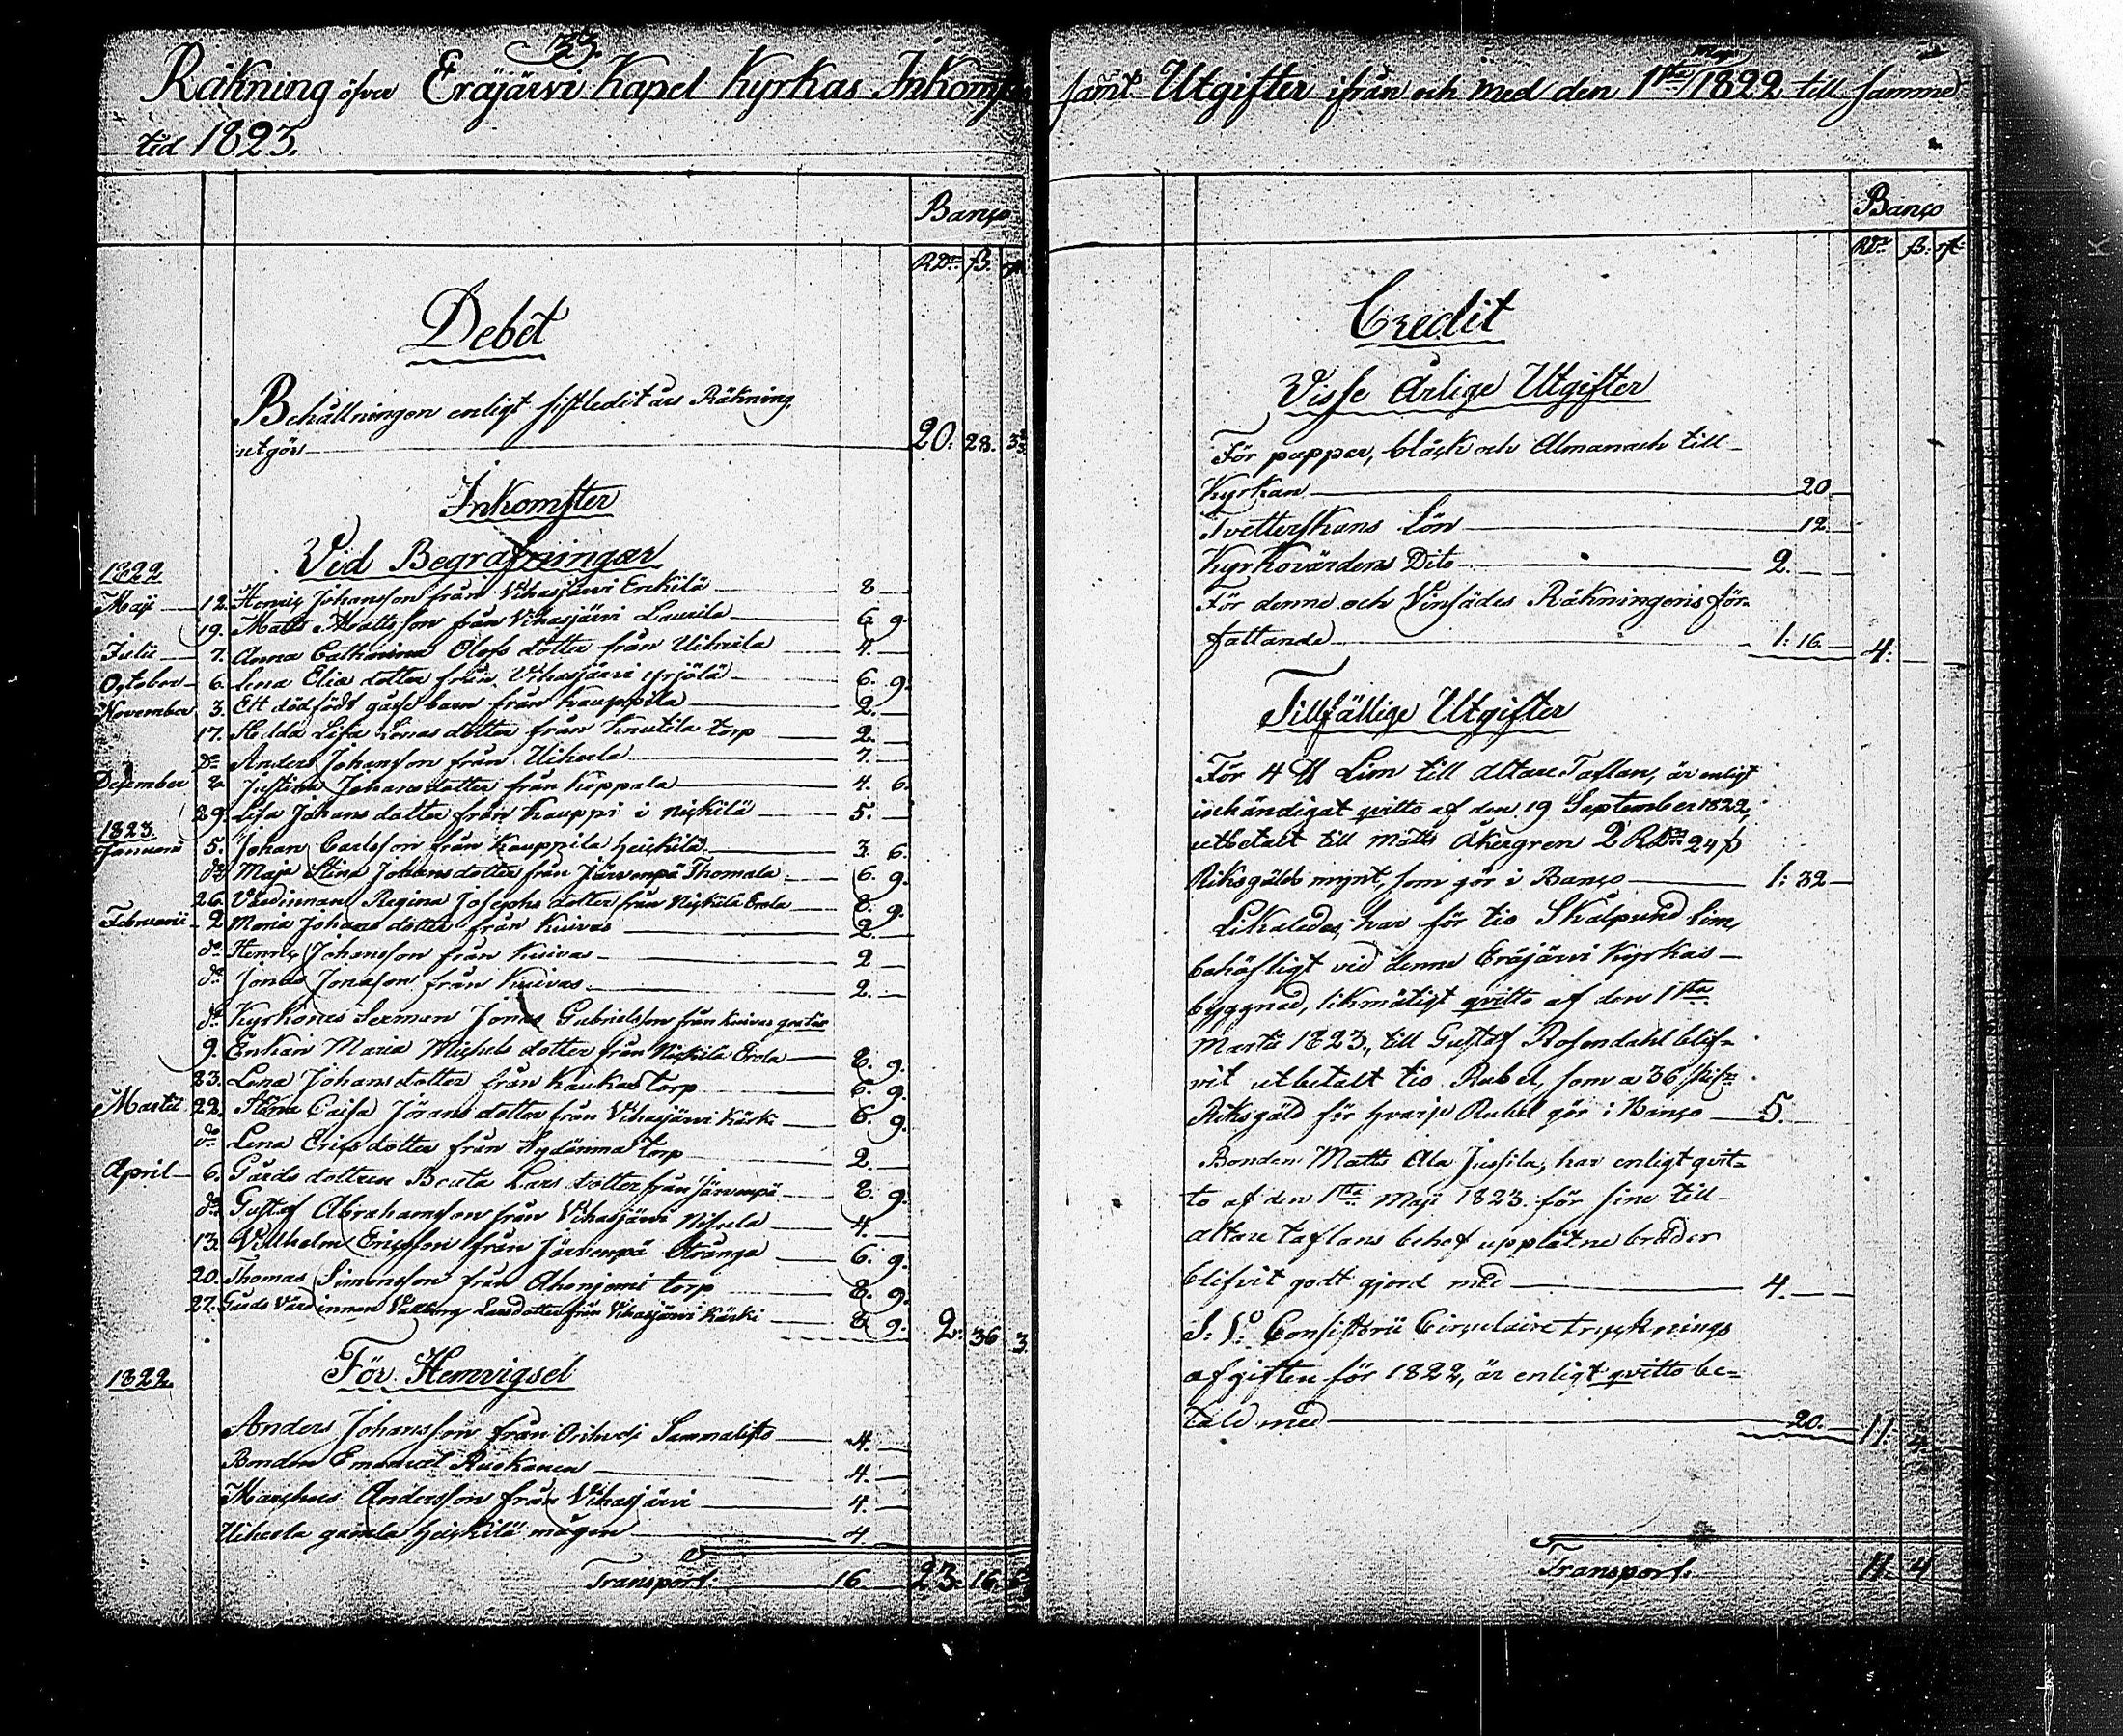 33.
Räkning öfver Eräjärvi Kapel Kyrkas Inkomst
tid 1823.
Banço
RDr ß. rst
Debet
Behållningen enligt sistledit års Räkning
utgör 20. 28. 3
Inkomster
Vid Begrafningar
1822
Maji 12. Henriç Johansson från Vihasjärvi Erikilä 8
19. Matts Mattsson från Vihasjärvi Laurila 6 9.
Julii 7. Anna Catharina Olofs dotter från Uiherla 4.
October 6. Lena Elias dotter från Vihasjärvi Yrjölä 6. 9.
November 3. Ett dödfödt gåsse barn från Kauppila 2.
17. Hedda Lisa Jonas dotter från Knutila torp 2.
Do Anders Johansson från Uiherla 7.
December 8. Justina Johans dotter från Koppala 4. 6.
29. Lisa Johans dotter från Kauppi i Niçkilä 5.
1823.
Januarii 5. Johan Carlsson från Kauppila Heiçkilä 3. 6.
do Maja Stina Johans dotter från Järvenpä Thomala 6. 9.
26. Värdinnan Regina Josephs dotter från Niçkilä Erola 8. 9.
Februarii 2 Maria Johans dotter från Kuivas 2.
do Henriç Johansson från Kuivas 2
do Jonas Jonasson från Kuivas 2.
do Kyrkones Sexman Jonas Gabrielsson från Kuivas gratis
9. Enkan Maria Michels dotter från Niçkilä Erola 8. 9.
23. Lena Johans dotter från Kaukas torp 6. 9.
Martii 22. Anna Caisa Jörans dotter från Vihasjärvi Kärki 6. 9.
do Lena Erics dotter från Sydänma torp 2.
April 6. Gårds dottren Beata Lars dotter från Järvenpä 8. 9.
do Gustaf Abrahamsson från Vihasjärvi Nisula 4.
13. Vilhelm Ericsson från Järvenpä Stränga 6. 9.
20. Thomas Simonsson från Ahonjoni torp 8. 9.
27. Gårds Värdinnan Valborg Larsdotter från Vihasjärvi Kärki 8 9. 2. 36 3.
För Hemvigsel
1822.
Anders Johansson från Orihvesi Sammalisto 4.
Bonden Emanuel Ruokanen 4.
Marçhus Andersson från Vihasjärvi 4.
Uiherla gamla Heiçkilä mågen 4
Transport. 16 23. 16. 6
samt Utgifter ifrån och med den 1sta Maji 1822 till samme
Banço
RDr ß. rst
Credit
Visse Årlige Utgifter
För papper, bläck och Almanach till
Kyrkan 20
Tvetterskans Lön 12
Kyrkovärdens Dito 2.
För denne och Vinsädes Räkningens för-
fattande 1: 16. 4:
Tillfällige Utgifter
För 4 ℔ Lim till altare Taflan, är enligt
inhändigat qvitto af den 19 September 1822,
utbetalt till Matts Åkergren 2 RDr 24 ß
Riksgälds mynt, som gör i Banço 1: 32
Likaledes, har för tio Skålpund Lim,
behöfligt vid denne Eräjärvi Kyrkas
byggnad, likmätigt qvitto af den 1sta
Martii 1823., till Gustaf Rosendahl blif-
vit utbetalt tio Rubel, som a 36 skr
Riksgäld för hvarje Rubel gör i Banço 5.
Bonden Matts Ala Jussila, har enligt qvit-
to af den 1sta Maji 1823 för sine till
altare taflans behof upplåtne bräder
blifvit godt gjord med 4.
S: V: Consistorii Circulaire trycknings
afgiften för 1822, är enligt qvitto be-
tald med 20. 11. 4.
Transport. 11. 4